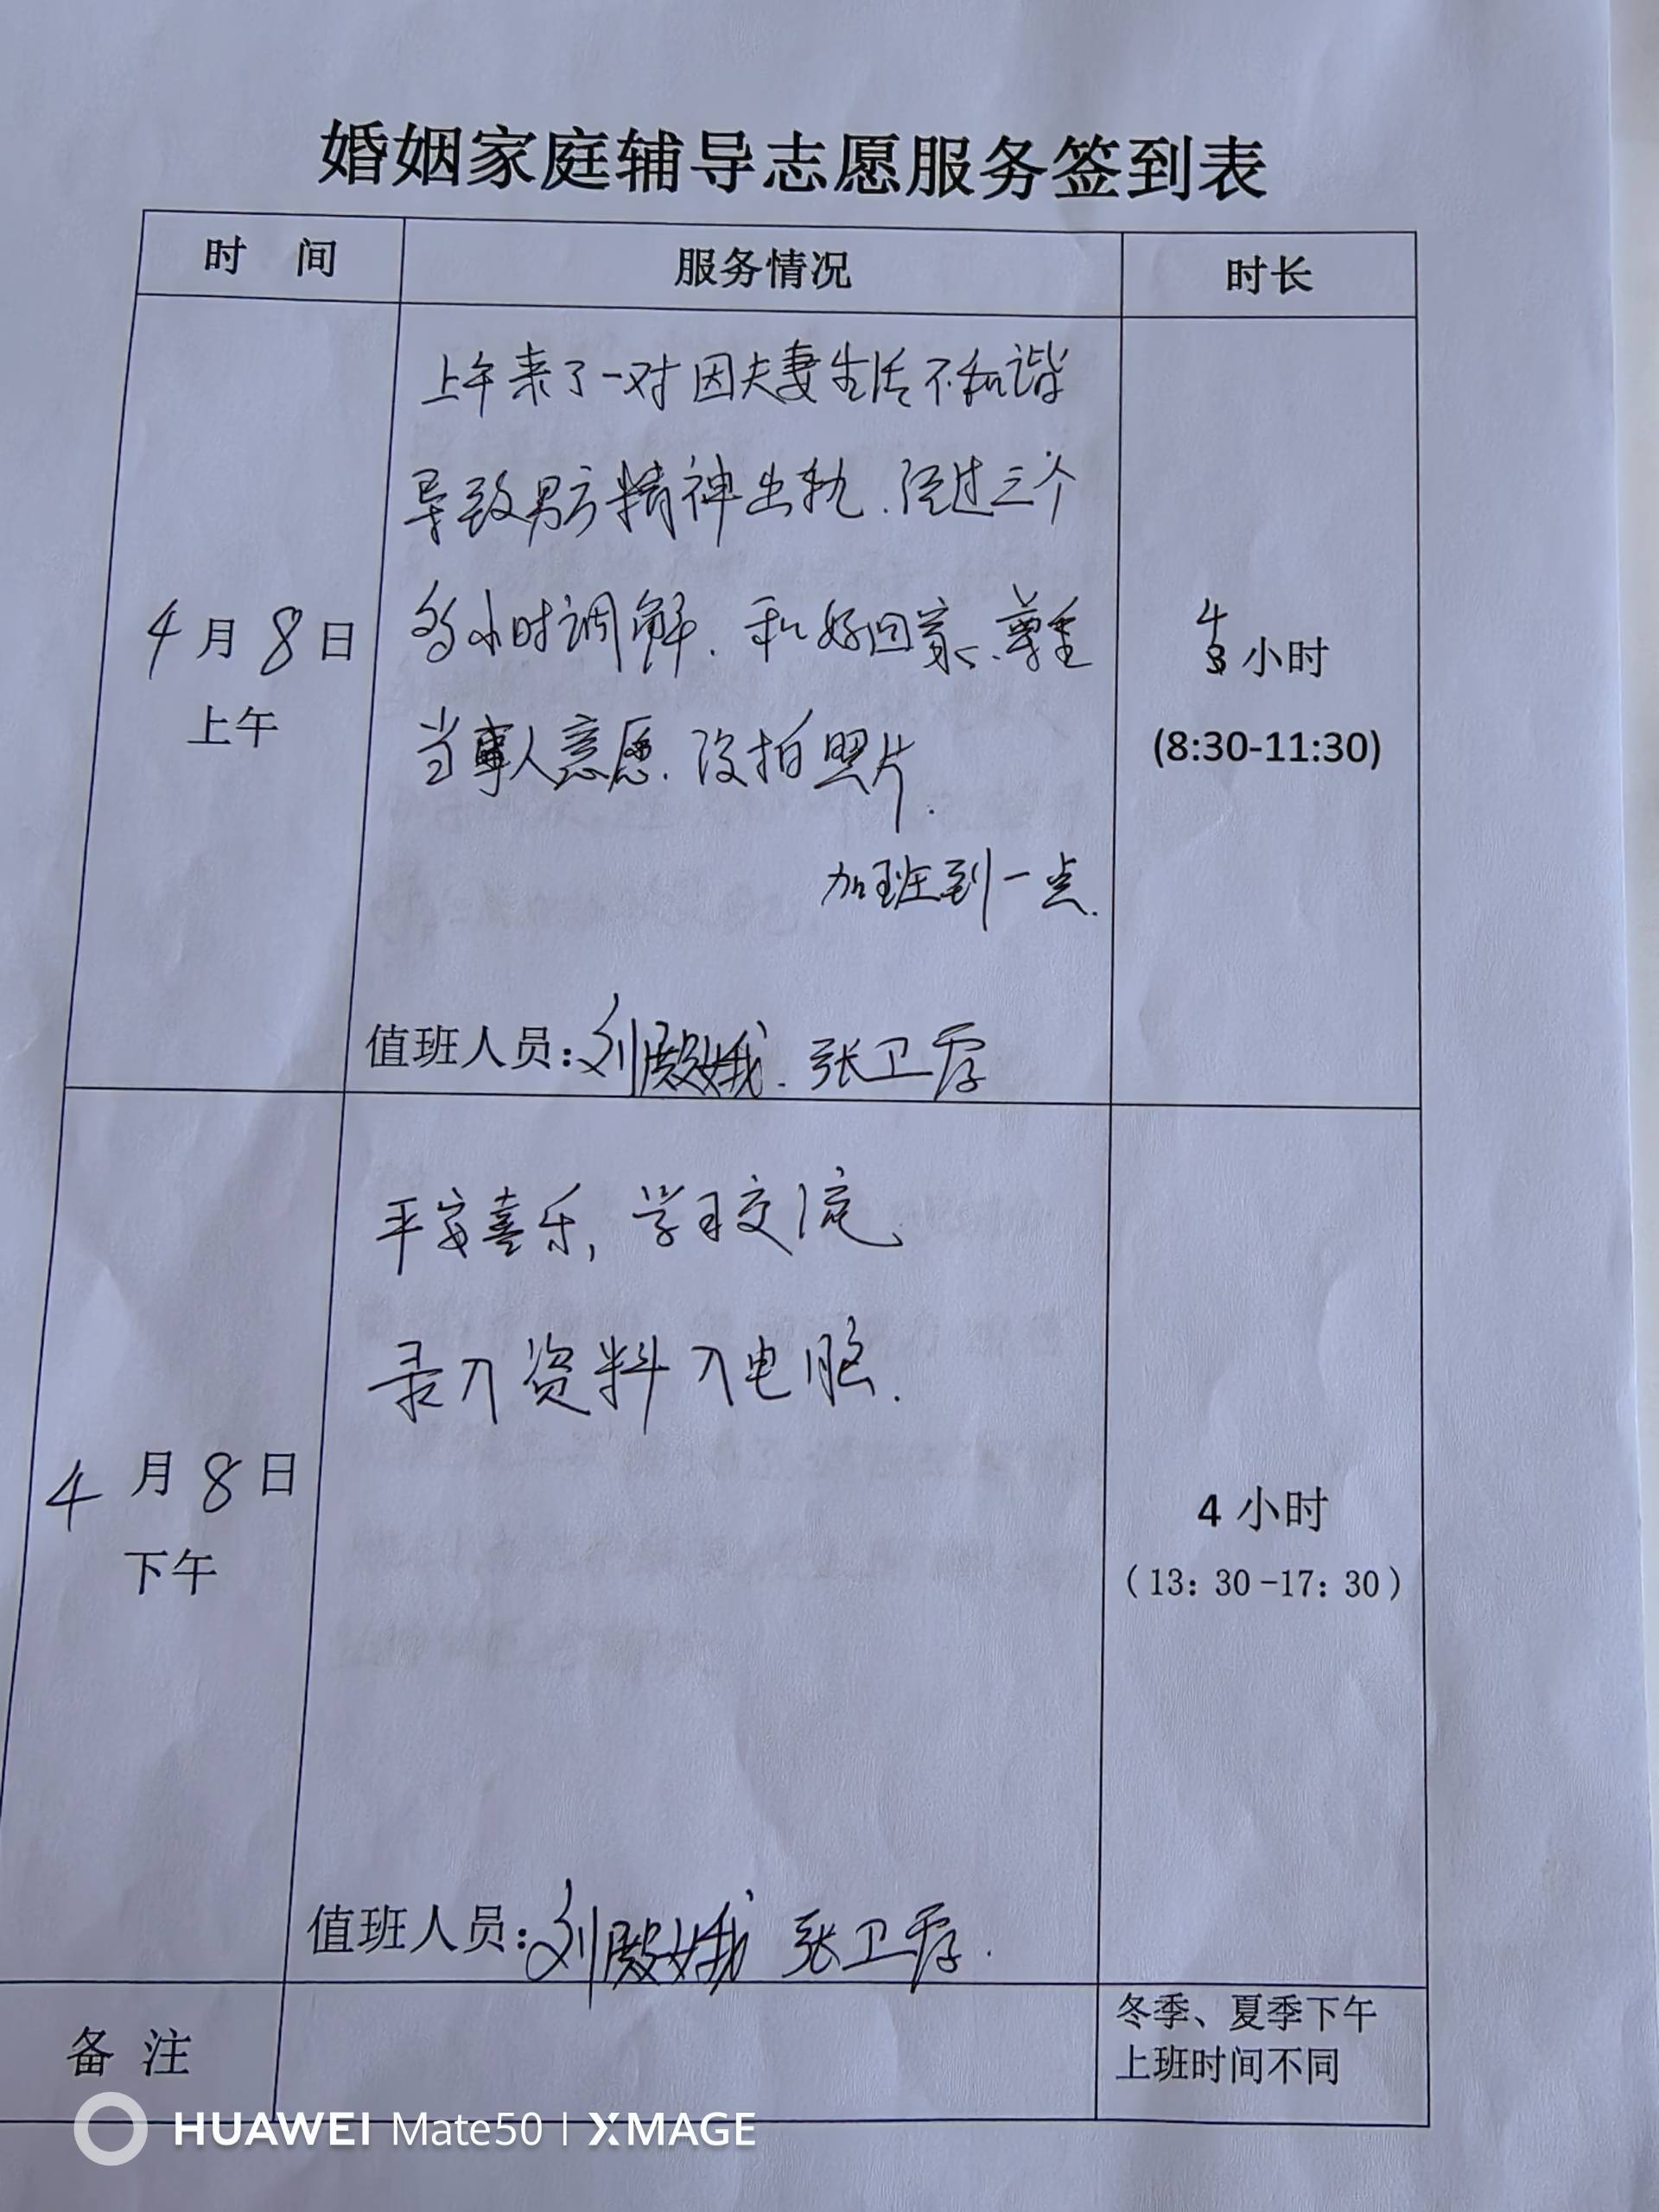 婚姻家庭辅导志愿服务签到表
时 间
服务情况
时长
4月8日
上午
上午来了一对因夫妻生活不和谐
导致男方精神出轨.经过三个
多小时调解.和好回家、尊重
当事人意愿.没拍照片.
加班到一点.
值班人员:刘殿娥.张卫霞
4
3小时
(8:30-11:30)
4月8日
下午
平安喜乐,学习交流
录入资料入电脑.
值班人员:刘殿娥 张卫霞.
4 小时
(13:30-17:30)
备 注
冬季、夏季下午
上班时间不同
HUAWEI Mate50 | XMAGE